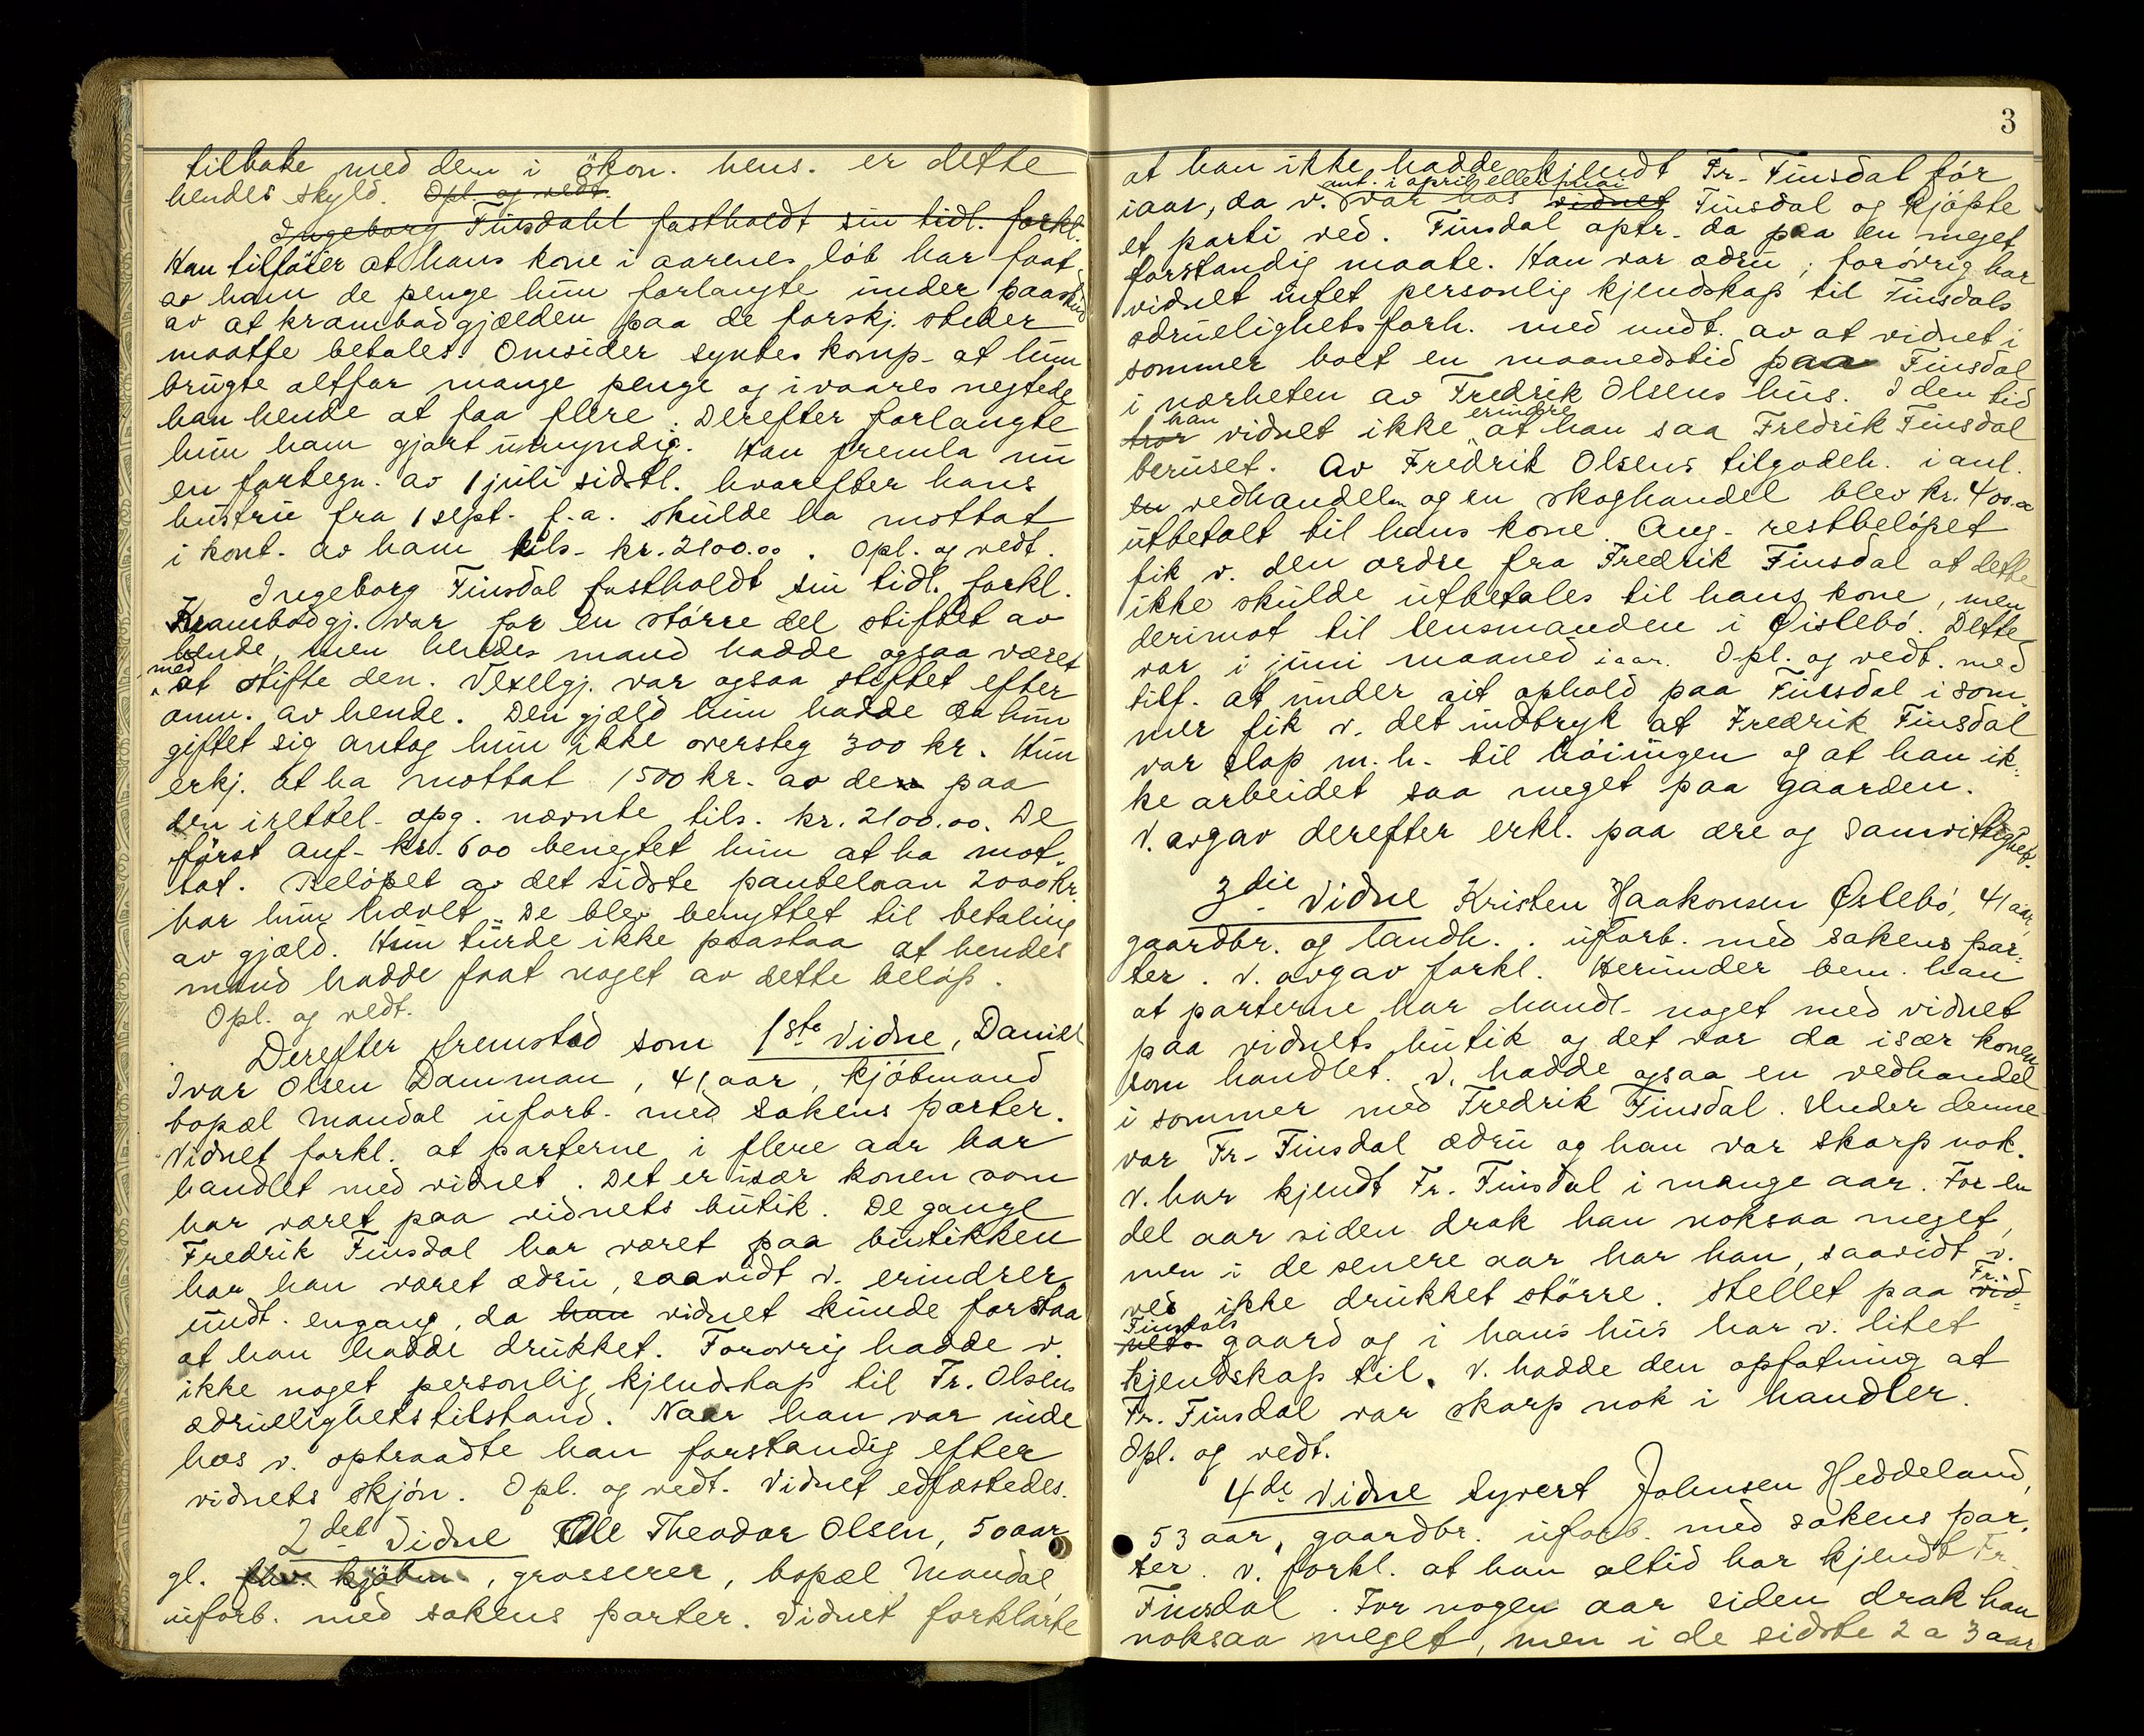 tilbake med dem i økon. hens. er dette
hendes skyld. Opl. og vedt.
Ingeborg Finsdahl fastholdt sin tidl. forkl.
Han tilføier at hans kone i aarenes løb har faat
av ham de penge hun forlangte under paaskud
av at krambodgjælden paa de forskj. steder
maatte betales. Omsider syntes komp. at hun
brugte altfor mange penge og ivaares negtede
han hende at faa flere. Derefter forlangte
hun ham gjort umyndig. Han fremla nu
en fortegn. av 1 juli sidstl. hvorefter hans
hustru fra 1 sept. f.a. skulde ha mottat
i kont. av ham tils. kr. 2100.00. Opl. og vedt.
Ingeborg Finsdal fastholdt sin tidl. forkl.
Krambodgj. var for en større del stiftet av
hende, men hendes mand hadde ogsaa været
med
at stifte den. Vexelgj. var ogsaa stiftet efter
anm. av hende. Den gjæld hun hadde da hun
giftet sig antog hun ikke oversteg 300 kr. Hun
erkj. at ha mottat 1500 kr. av den paa
den irettel. opg. nævnte tils. kr. 2100.00. De
først anf. kr. 600 benegtet hun at ha mot-
tat. Beløpet av det sidste pantelaan 2000 kr.
har hun hævet. De blev benyttet til betaling
av gjæld. Hun turde ikke paastaa at hendes
mand hadde faat noget av dette beløp.
Opl. og vedt.
Derefter fremstod som 1ste Vidne, Daniel
Ivar Olsen Damman, 41 aar, kjøbmand
bopæl Mandal uforb. med sakens parter.
Vidnet forkl. at parterne i flere aar har
handlet med vidnet. Det er især konen som
har været paa vidnets butik. De gange
Fredrik Finsdal har været paa butikken
har han været ædru, saavidt v. erindrer
undt. engang, da han vidnet kunde forstaa
at han hadde drukket. Forøvrig hadde v.
ikke noget personlig kjendskap til Fr. Olsens
ædruelighetstilstand. Naar han var inde
hos v. optraadte han forstandig efter
vidnets skjøn. Opl. og vedt. Vidnet edfæstedes.
2det Vidne Ole Theodor Olsen, 50 aar
gl. fhv. kjøbm., grosserer, bopæl Mandal
uforb. med sakens parter. Vidnet forklarte
3
at han ikke hadde kjendt Fr. Finsdal før
ant. i april eller mai
iaar, da v. var hos vidnet Finsdal og kjøpte
et parti ved. Finsdal optr. da paa en meget
forstandig maate. Han var ædru; forøvrig har
vidnet intet personlig kjendskap til Finsdals
ædruelighetsforh. med undt. av at vidnet i
sommer boet en maanedstid paa Finsdal
i nærheten av Fredrik Olsens hus. I den tid
kan erindre
tror vidnet ikke at han saa Fredrik Finsdal
beruset. Av Fredrik Olsens tilgodeh. i anl.
en vedhandelen og en skoghandel blev kr. 400.00
utbetalt til hans kone. Ang. restbeløpet
fik v. den ordre fra Fredrik Finsdal at dette
ikke skulde utbetales til hans kone, men
derimot til lensmanden i Øislebø. Dette
var i juni maaned iaar. Opl. og vedt. med
tilf. at under sit ophold paa Finsdal i som-
mer fik v. det indtryk at Fredrik Finsdal
var slap m. h. til høiingen og at han ik-
ke arbeidet saa meget paa gaarden.
V. avgav derefter erkl. paa ære og samvittighet.
3die Vidne Kristen Haakonsen Øslebø, 41 aar,
gaardbr. og landh. . uforb. med sakens par-
ter. V. avgav forkl. Herunder bem. han
at parterne har handl. noget med vidnet
paa vidnets butik og det var da især konen
som handlet. V. hadde ogsaa en vedhandel
i sommer med Fredrik Finsdal. Under denne
var Fr. Finsdal ædru og han var skarp nok.
V. har kjendt Fr. Finsdal i mange aar. For en
del aar siden drak han noksaa meget,
men i de senere aar har han, saavidt v.
Fr.
ved ikke drukket større. Stellet paa vid-
Finsdals
nets gaard og i hans hus har v. litet
kjendskap til. V. hadde den opfatning at
Fr. Finsdal var skarp nok i handler.
Opl. og vedt.
4de Vidne Syvert Johnsen Heddeland,
53 aar, gaardbr. uforb. med sakens par-
ter. V. forkl. at han altid har kjendt Fr.
Finsdal. For nogen aar siden drak han
noksaa meget, men i de sidste 2 a 3 aar